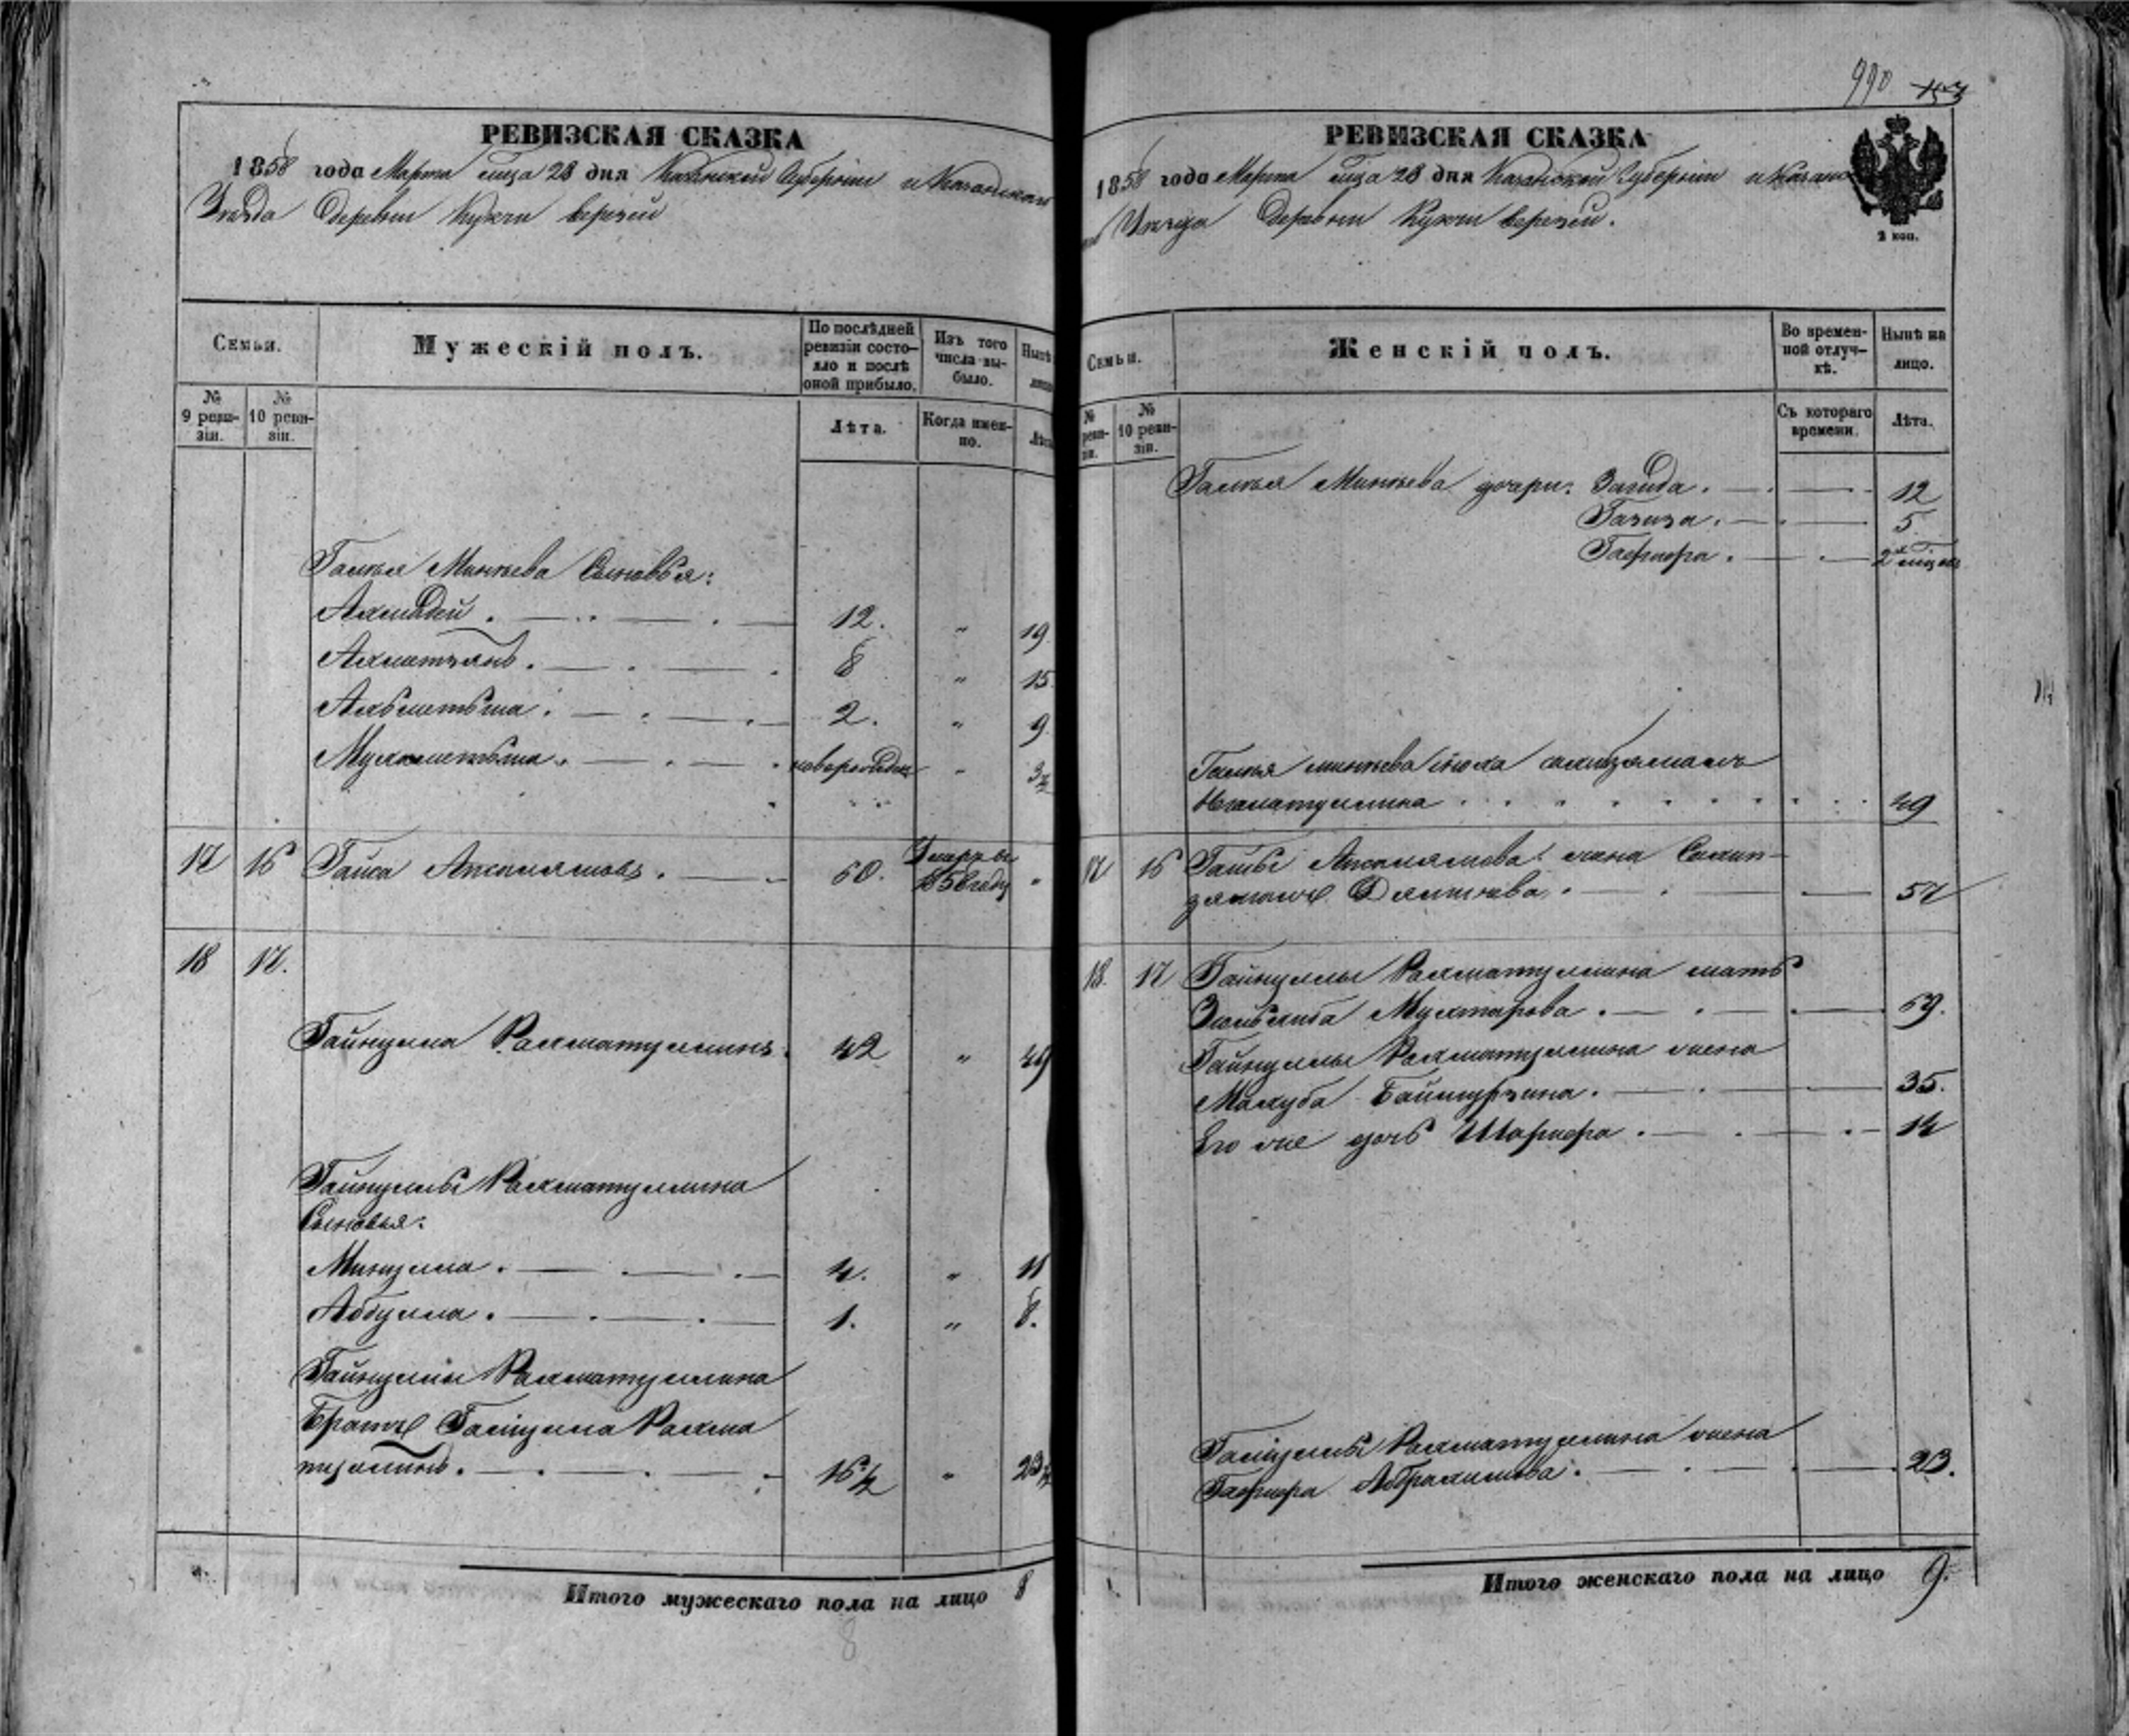 990 153
РЕВИЗСКАЯ СКАЗКА
1858 года Марта мца 28 дня Казанской Губернiи и Казанскаго
Уезда Деревни Кукчи верхей
Семьи.
Мужескiй полъ.
По послѣдней ревизiи состояло и послѣ оной прибыло.
Изъ того числа выбыло.
Нынѣ
№ 9 ревизiи.
№ 10 ревизiи.
Лѣта.
Когда именно.
Лѣта
Галѣя Минѣева Сыновья:
Ахмадей . 12. " 19.
Ахматзянъ . 8 " 15
2. " 9
Мухаметьша . новорожден " 3½
17 16 Гайса 60. Умаръ въ 1856 году "
18 17.
Гайнулла Рахматуллинъ. 42 " 49
Гайнуллы Рахматуллина
Сыновья:
Минулла . 4. " 11
Абдулла . 1. " 8.
Гайнуллы Рахматуллина
Братъ Галiулла Рахма
туллинъ . 16½ " 23½
Итого мужескаго пола на лицо 8
8
РЕВИЗСКАЯ СКАЗКА
1858 года Марта мца 28 дня Казанской Губернiи и Казанс
каго Уезда Деревни Кукчи верхей.
2 коп.
Семьи.
Женскiй полъ.
Во временной отлучкѣ.
Нынѣ на лицо.
№ ревизiи.
№ 10 ревизiи.
Съ котораго времени.
Лѣта.
Галѣя Минѣева дочери: Загида . 12
Газиза . 5
Гафифа . 2х мцовъ
Галѣя Минѣева сноха
Нигаматуллина 49
17 16 жена
57
18. 17 Гайнуллы Рахматуллина мать
Мухтарова . 69.
Гайнуллы Рахматуллина жена
Махуба Баймурзина . 35.
Его же дочь Шарифа . 14
Галiуллы Рахматуллина жена
Гафифа . 23.
Итого женскаго пола на лицо 9.